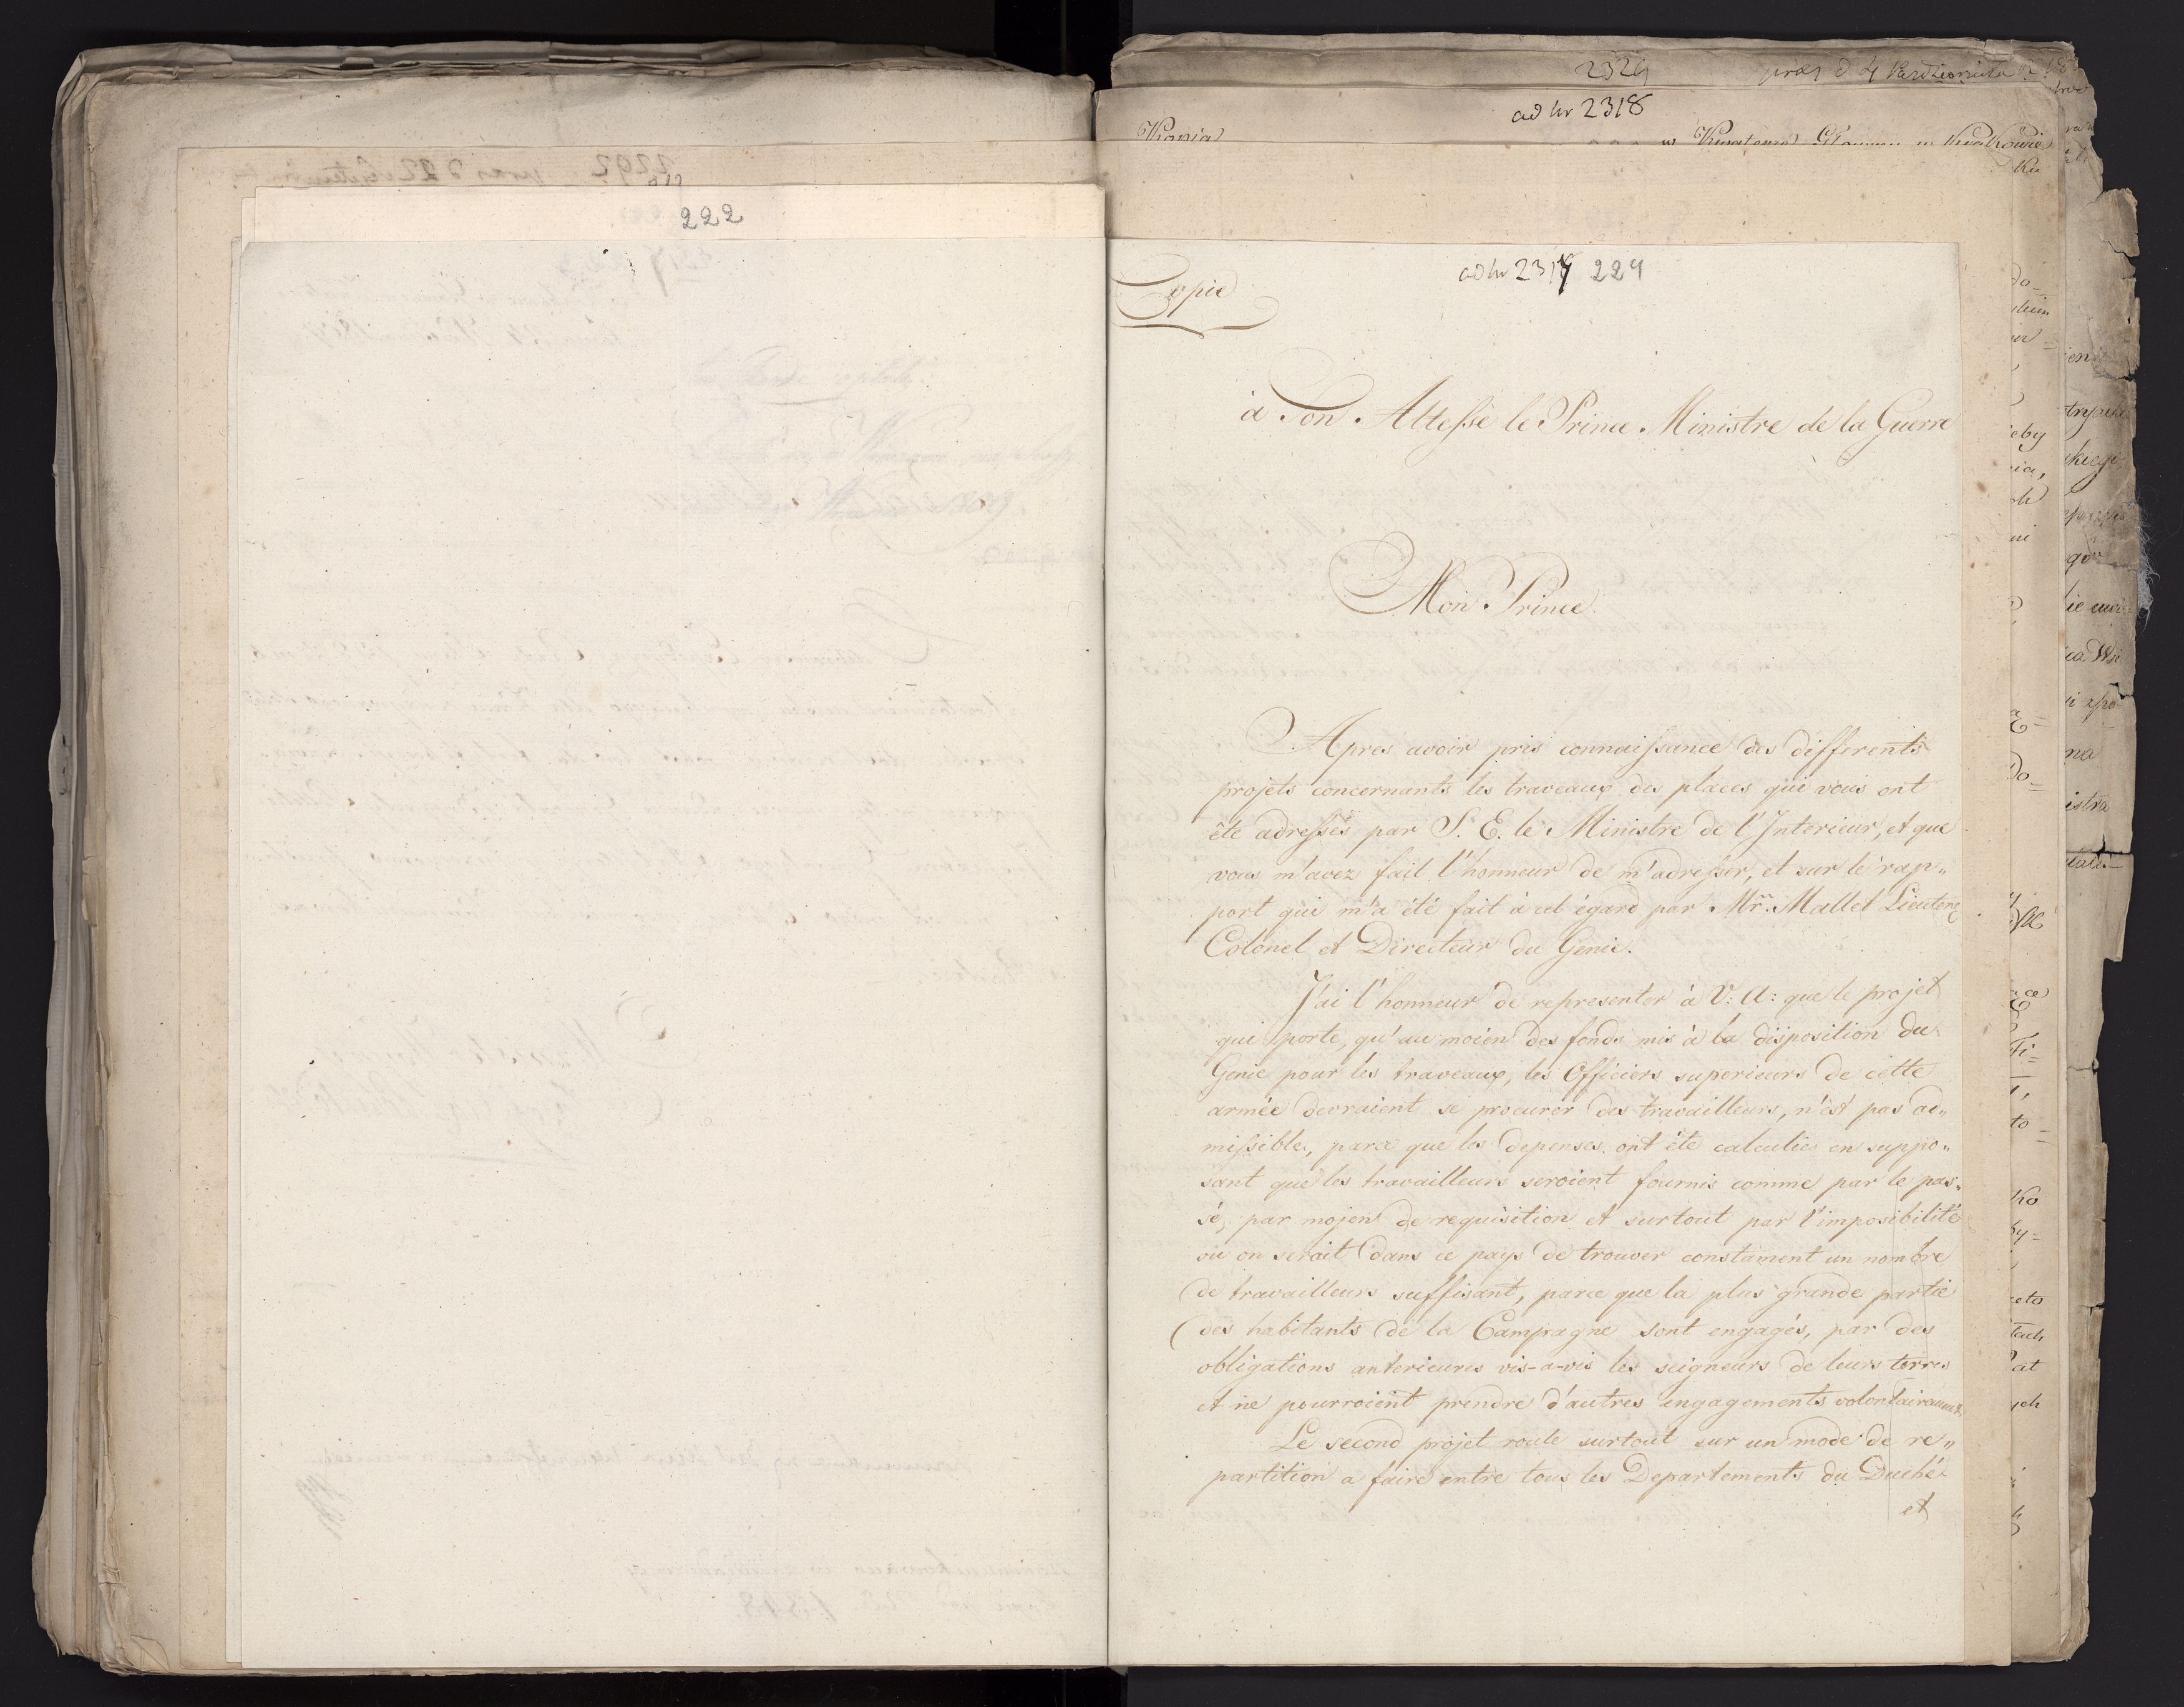 222
2329
ad nr 2318
Kopia
ad nr 2317 224
Copie
à Son Altesse le Prince Ministre de la Guerre
Mon Prince.
Apres avoir pris connaissance des differents
projets concernants les traveaux des places qui vous ont
été adressés par S. E. le Ministre de l'Interieur, et que
vous m'avez fait l'honneur de m'adresser, et sur le rap„
port qui m'a été fait à cet égard par Mr. Mallet Lieuten
Colonel et Directeur du Genie.
J'ai l'honneur de representer à V: A: que le projet
qui porte, qu'au moien des fonds mis à la disposition du
Genie pour les traveaux, les Officiers superieurs de cette
armée devraient se procurer des travailleurs, n'est pas ad„
missible, parce que les depenses ont été calculées en suppo„
sant que les travailleurs seroient fournis comme par le pas„
sé, par mojen de requisition et surtout par l'imposibilité
ou on serait dans ce pays de trouver constament un nombre
de travailleurs suffisant, parce que la plus grande partie
des habitants de la Campagne sont engagés, par des
obligations anterieures vis-a-vis les seigneurs de leurs terres
et ne pourroient prendre d'autres engagements volontairement
Le second projet roule surtout sur un mode de re„
partition a faire entre tous les Departements du Duché
et